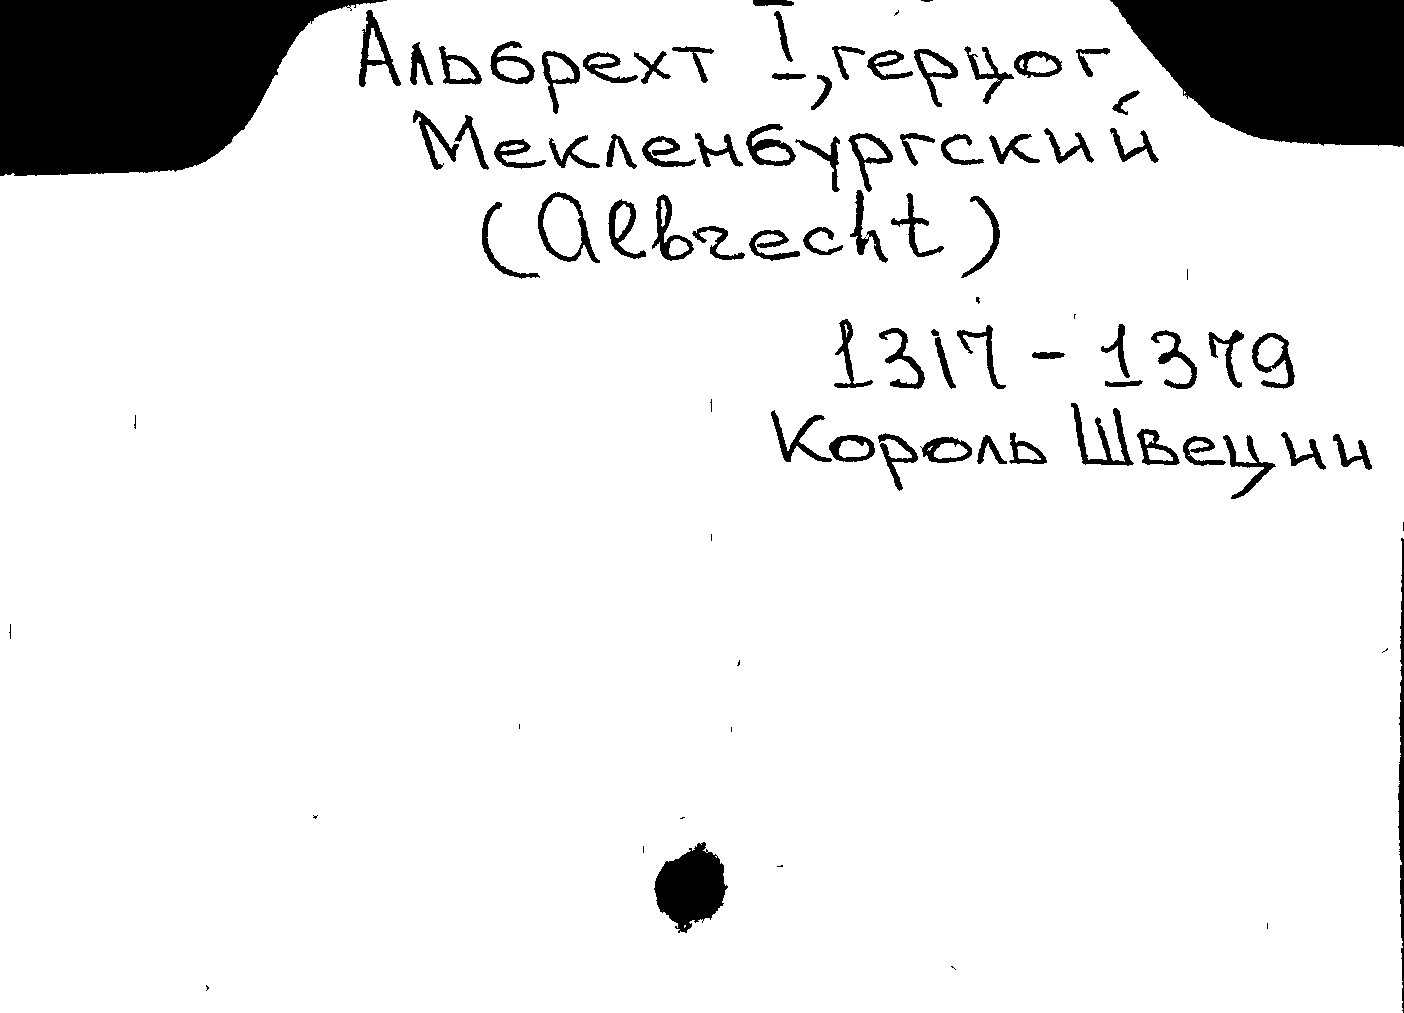 Альбрехт I, герцог
Мекленбургский
(Albrecht)
1317 - 1379
Король Швеции